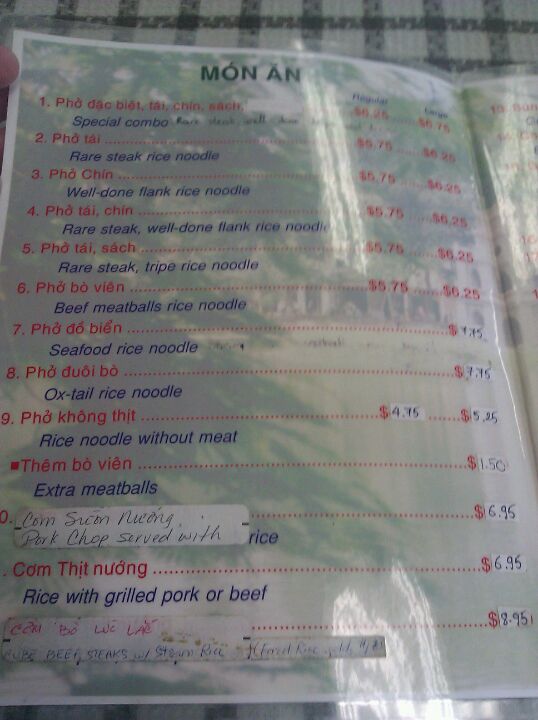 MÓN ĂN
Regular Large
1. Phở đặc biệt, tái, chín, sách, $6.25 $6.75
Special combo Rare steak well done
2. Phở tái $5.75 $6.25
Rare steak rice noodle
3. Phở Chín $5.75 $6.25
Well-done flank rice noodle
4. Phở tái, chín $5.75 $6.25
Rare steak, well-done flank rice noodle
5. Phở tái, sách $5.75 $6.25
Rare steak, tripe rice noodle
6. Phở bò viên $5.75 $6.25
Beef meatballs rice noodle
7. Phở đồ biển $7.75
Seafood rice noodle
8. Phở đuôi bò $7.75
Ox-tail rice noodle
9. Phở không thịt $4.75 $5.25
Rice noodle without meat
Thêm bò viên $1.50
Extra meatballs
0. Cơm Sườn Nướng $6.95
Pork Chop served with rice
. Cơm Thịt nướng $6.95
Rice with grilled pork or beef
CƠM BÒ LÚC LẮC $8.95
CUBE BEEF STEAKS w/ Steam Rice (Fried Rice